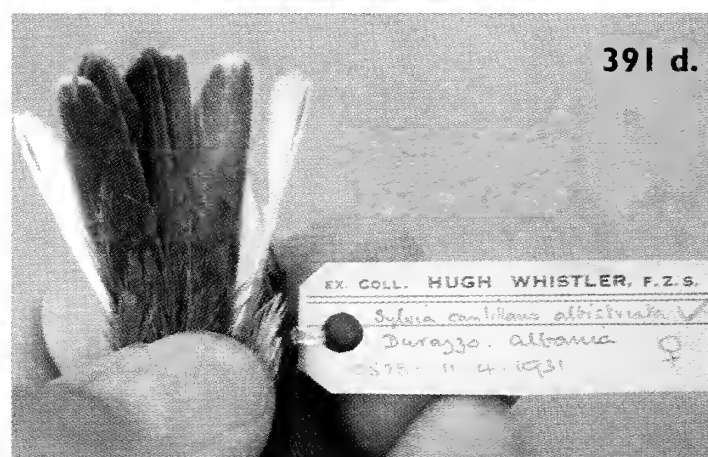 391 d.
EX. COLL. HUGH WHISTLER, F.Z.S.
Sylvia cantillans albistriata ✓
Durazzo. Albania ♀
11. 4. 1931